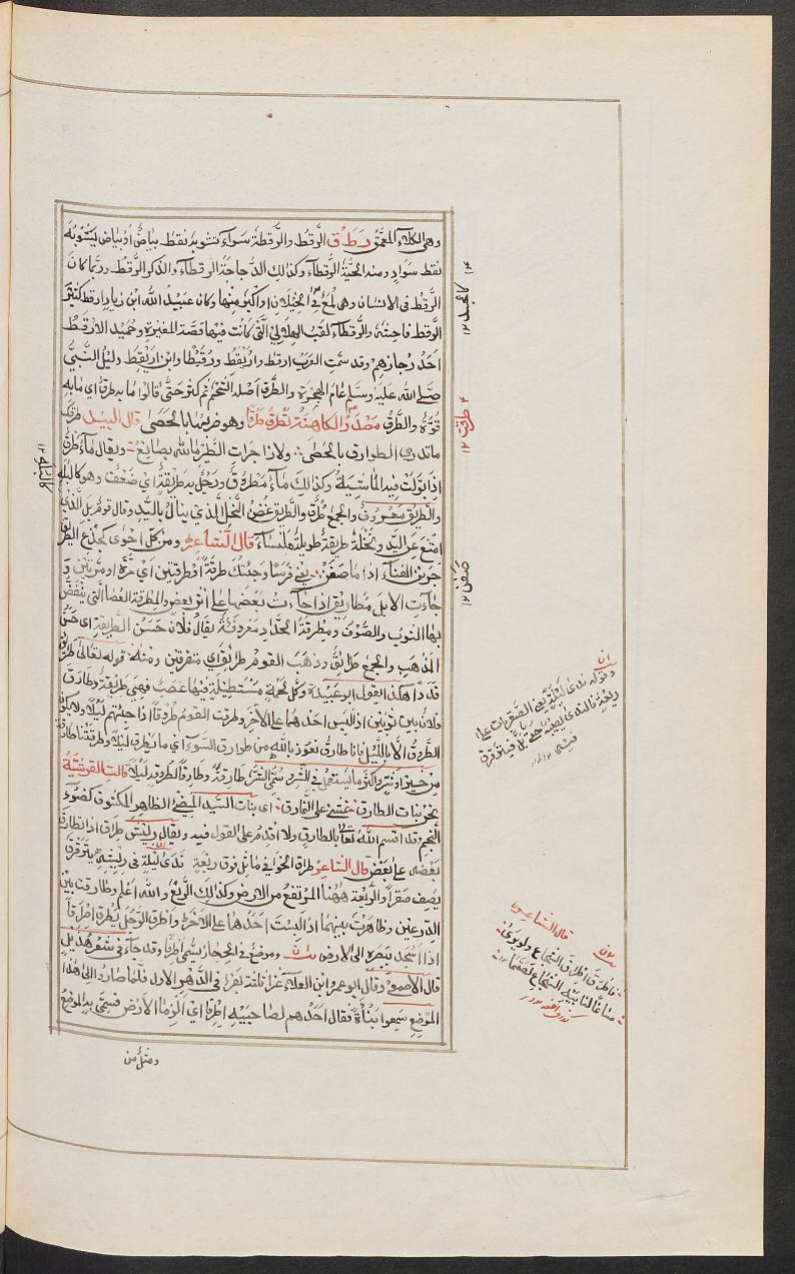 وهى الكلاو المعمق رطق الرقط والرقطة سواء تشوبه نقط بياض او بياض يشوبه
نقط سواد ومنه الحية الرقطاء وكذلك الدجاجة الرقطاء والذكر الرقط وربما كان
الرقط فى الانسان وهى لمع فى الخيلان او اكبر منها وكان عبيد الله ابن زياد ارقط كثير
الرقط فاحشته والرقطاء لقب الهلالي التى كانت فيها قصة المغيرة وحميد الارقط
احد رجازهم وقد سمت العرب ارقط واريقط ورقيطا وابن اريقط دليل النبى
صلى الله عليه وسلم عام الهجرة والطرق اصله الشحم ثم كثر حتى قالوا ما به طرق اى ما به
قوة والطرق مصدر الكاهنة تطرق طرقا وهو ضربها بالحصى قال لبيد طرقك
ما تدرى الطوارق بالحصى ولا زاجرات الطير ما الله صانع ويقال ماء طرق
اذا بولت فيه الماشية وكذلك ماء مطروق ورجل به طريقة اى ضعف وهو كالبله
والطريق معروف والجمع طرق والطريق غض النخل الذى ينال باليد وقال قوم بل الذى
امتنع عن اليد ونخلة طريقة طويلة ملساء قال الشاعر ومن كل احوى كجذع الطريق
يزين الفناء اذا ما صفن يعنى فرسا وجئتك طرقة او طرقتين اى مرة او مرتين و
جاءت الابل مطاريق اذا جاءت بعضها على اثر بعض والمطرقة العصا التى ينفض
بها الثوب والصوف ومطرقة الحداد معروفة يقال فلان حسن الطريقة اى حسن
المذهب والجمع طرائق وذهب القوم طرائق اى متفرقين ومنه قوله تعالى طرائق
قددا هكذا القول ابو عبيدة وكل لحمة مستطيلة فيها عصب فهى طريقة وطارق
فلان بين ثوبين اذا لبس احدهما على الاخر وطرقت القوم طروقا اذا جئتهم ليلا ولا يكون
الطروق الا بالليل فانا طارق نعوذ بالله من طوارق السوء اى ما يطرق ليلا وطرقتنا طارقة
من خير او شر واكثر ما يستعمل فى الشر وسمى الشر طارقة وطارقا لطروقه ليلا قالت القرشية
نحن بنات الطارق نمشى على النمارق اى بنات السيد المضئ الظاهر المكشوف كضوء
النجم وقد اقسم الله تعالى بالطارق ولا اقدم على القول فيه ويقال ريش طراق اذا تطارق
بعضه على بعض قال الشاعر طراق الخوافى ماثل فوق ريعة ندى ليلة فى ريشه يترقرق
يصف صقرا والريعة ههنا المرتفع من الارض وكذلك الريع والله اعلم وطارقت بين
الدرعين وظاهرت بينهما اذا لبست احدهما على الاخرى واطرق الرجل يطرق اطراقا
اذا اسجد ببصره الى الارض وموضع فى الحجاز يسمى اطرقا وقد جاء فى شعر هذيل
قال الاصمعى وقال ابو عمرو ابن العلاء غزا ثلثة نفر فى الدهر الاول فلما صاروا الى هذا
الموضع سمعوا نبأة فقال احدهم لصاحبيه اطرقا اى الزما الارض فسمى به الموضع
ومثل من
كالجبل ١٢
طرقت ١٢
صفن ١٢
كالبله ١٢
قال الشاعر
فاطرق اطراق الشجاع ولو يرى
مساغا لنابيه الشجاع لصمما